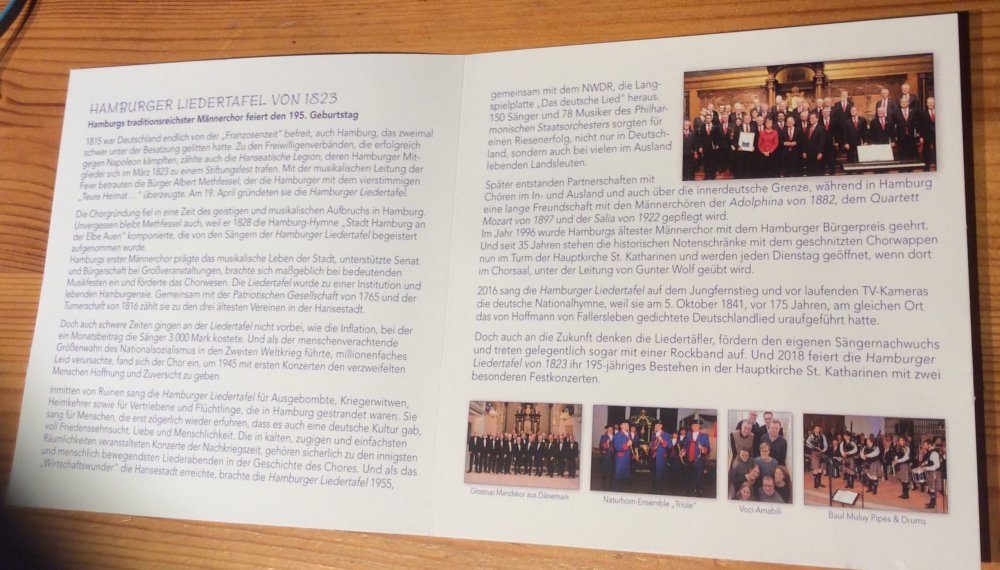 HAMBURGER LIEDERTAFEL VON 1823
Hamburgs traditionsreichster Männerchor feiert den 195. Geburtstag
1815 war Deutschland endlich von der „Franzosenzeit" befreit, auch Hamburg, das zweimal
schwer unter der Besatzung gelitten hatte. Zu den Freiwilligenverbänden, die erfolgreich
gegen Napoleon kämpften, zählte auch die Hanseatische Legion, deren Hamburger Mit-
glieder sich im März 1823 zu einem Stiftungsfest trafen. Mit der musikalischen Leitung der
Feier betrauten die Bürger Albert Methfessel, der die Hamburger mit dem vierstimmigen
„Teure Heimat ..." überzeugte. Am 19. April gründeten sie die Hamburger Liedertafel.
Die Chorgründung fiel in eine Zeit des geistigen und musikalischen Aufbruchs in Hamburg.
Unvergessen bleibt Methfessel auch, weil er 1828 die Hamburg-Hymne „Stadt Hamburg an
der Elbe Auen" komponierte, die von den Sängern der Hamburger Liedertafel begeistert
aufgenommen wurde.
Hamburgs erster Männerchor prägte das musikalische Leben der Stadt, unterstützte Senat
und Bürgerschaft bei Großveranstaltungen, brachte sich maßgeblich bei bedeutenden
Musikfesten ein und förderte das Chorwesen. Die Liedertafel wurde zu einer Institution und
lebenden Hamburgensie. Gemeinsam mit der Patriotischen Gesellschaft von 1765 und der
Turnerschaft von 1816 zählt sie zu den drei ältesten Vereinen in der Hansestadt.
Doch auch schwere Zeiten gingen an der Liedertafel nicht vorbei, wie die Inflation, bei der
ein Monatsbeitrag die Sänger 3.000 Mark kostete. Und als der menschenverachtende
Größenwahn des Nationalsozialismus in den Zweiten Weltkrieg führte, millionenfaches
Leid verursachte, fand sich der Chor ein, um 1945 mit ersten Konzerten den verzweifelten
Menschen Hoffnung und Zuversicht zu geben.
Inmitten von Ruinen sang die Hamburger Liedertafel für Ausgebombte, Kriegerwitwen,
Heimkehrer sowie für Vertriebene und Flüchtlinge, die in Hamburg gestrandet waren. Sie
sang für Menschen, die erst zögerlich wieder erfuhren, dass es auch eine deutsche Kultur gab,
voll Friedenssehnsucht, Liebe und Menschlichkeit. Die in kalten, zugigen und einfachsten
Räumlichkeiten veranstalteten Konzerte der Nachkriegszeit, gehören sicherlich zu den innigsten
und menschlich bewegendsten Liederabenden in der Geschichte des Chores. Und als das
„Wirtschaftswunder" die Hansestadt erreichte, brachte die Hamburger Liedertafel 1955,
gemeinsam mit dem NWDR, die Lang-
spielplatte „Das deutsche Lied" heraus.
150 Sänger und 78 Musiker des Philhar-
monischen Staatsorchesters sorgten für
einen Riesenerfolg, nicht nur in Deutsch-
land, sondern auch bei vielen im Ausland
lebenden Landsleuten.
Später entstanden Partnerschaften mit
Chören im In- und Ausland und auch über die innerdeutsche Grenze, während in Hamburg
eine lange Freundschaft mit den Männerchören der Adolphina von 1882, dem Quartett
Mozart von 1897 und der Salia von 1922 gepflegt wird.
Im Jahr 1996 wurde Hamburgs ältester Männerchor mit dem Hamburger Bürgerpreis geehrt.
Und seit 35 Jahren stehen die historischen Notenschränke mit dem geschnitzten Chorwappen
nun im Turm der Hauptkirche St. Katharinen und werden jeden Dienstag geöffnet, wenn dort
im Chorsaal, unter der Leitung von Gunter Wolf geübt wird.
2016 sang die Hamburger Liedertafel auf dem Jungfernstieg und vor laufenden TV-Kameras
die deutsche Nationalhymne, weil sie am 5. Oktober 1841, vor 175 Jahren, am gleichen Ort
das von Hoffmann von Fallersleben gedichtete Deutschlandlied uraufgeführt hatte.
Doch auch an die Zukunft denken die Liedertäfler, fördern den eigenen Sängernachwuchs
und treten gelegentlich sogar mit einer Rockband auf. Und 2018 feiert die Hamburger
Liedertafel von 1823 ihr 195-jähriges Bestehen in der Hauptkirche St. Katharinen mit zwei
besonderen Festkonzerten.
Glostrup Mandskor aus Dänemark
Naturhorn-Ensemble „Triole"
Voci Amabili
Baul Muluy Pipes & Drums